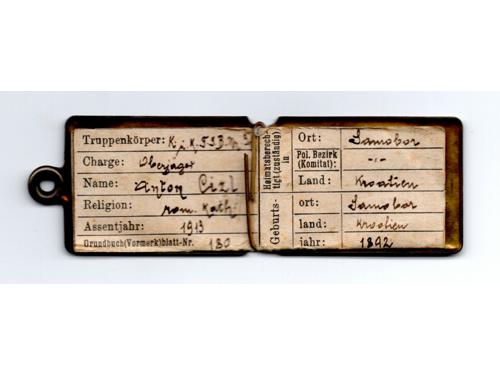 Truppenkörper: K. u. K. FJB
Charge: Oberjäger
Name: Anton Cizl
Religion: röm. kath.
Assentjahr: 1913
Grundbuch(Vormerk)blatt-Nr. 130
Heimatsberech-
tigt (zuständig)
in
Ort: Samobor
Pol. Bezirk
(Komitat): -"-
Land: Kroatien
Geburts-
ort: Samobor
land: Kroatien
jahr: 1892